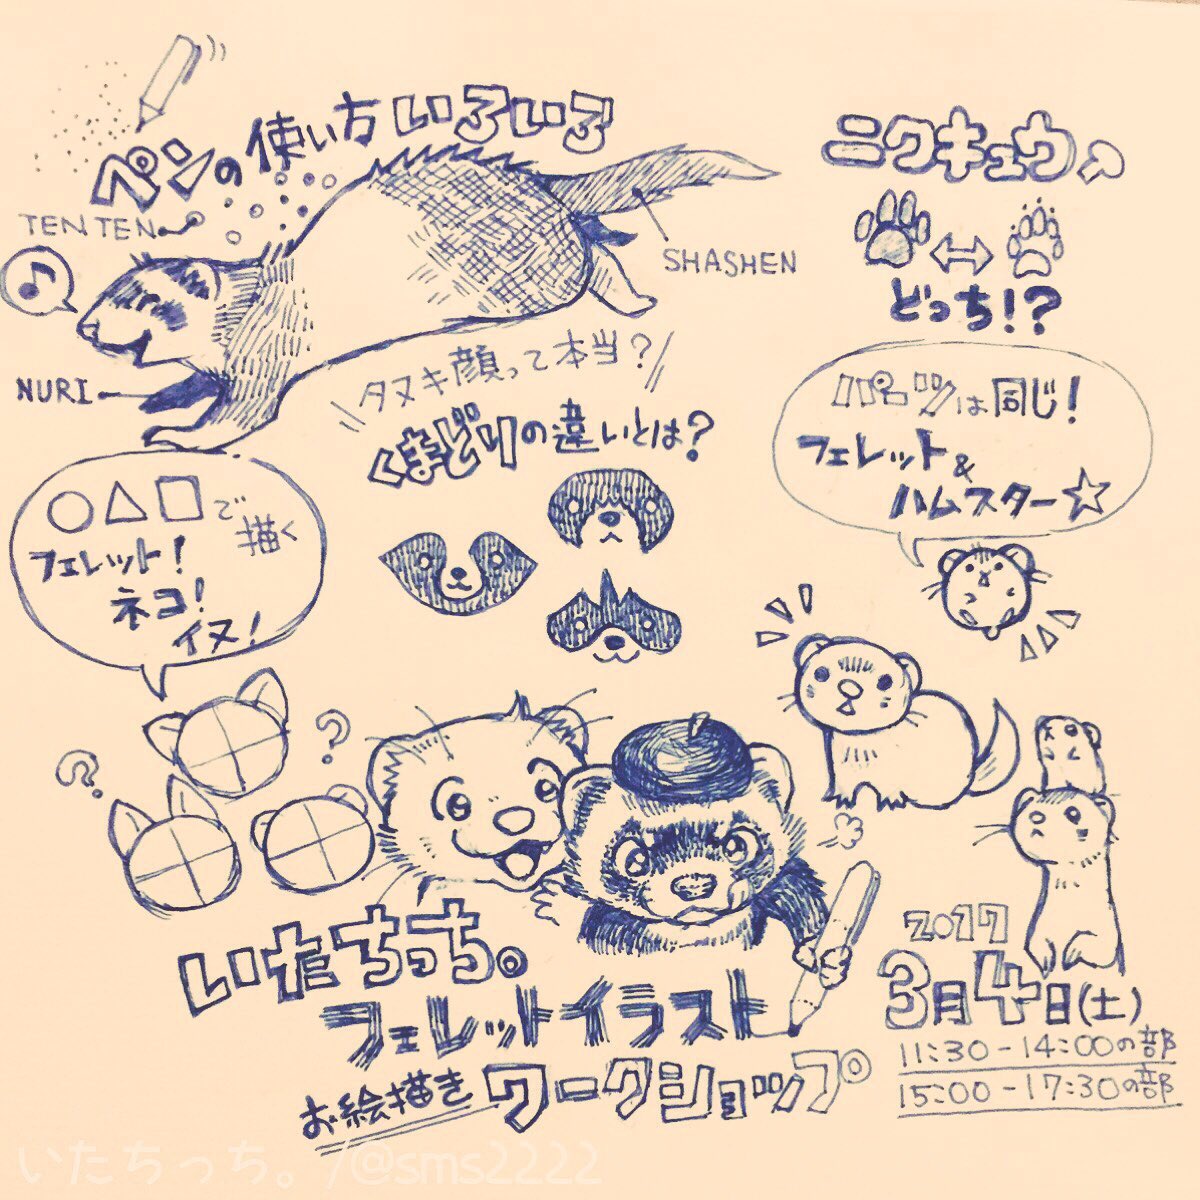 ペンの使い方いろいろ
TENTEN
NURI
SHASHEN
ニクキュウ
どっち!?
パーツは同じ!
フェレット&
ハムスター☆
タヌキ顔って本当?
くまどりの違いとは?
○△□で
描く
フェレット!
ネコ!
イヌ!
?
?
いたちっち。
フェレットイラスト
お絵描きワークショップ
2017
3月4日(土)
11:30-14:00の部
15:00-17:30の部
いたちっち。/@sms2222